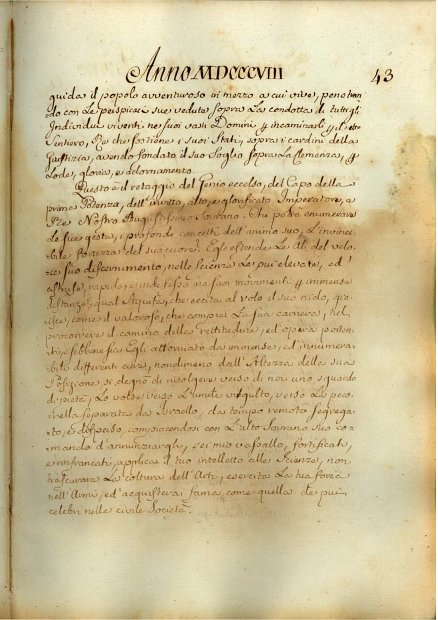 Anno MDCCCVIII 43
guida il popolo avventuroso in mezzo a cui vive, penetran
do con le perspicaci sue vedute sopra la condotta di tutti gl'
Individui viventi ne suoi vasti Domini p incaminarli p il retto
sentiero, Re che sostiene i suoi Stati, sopra i cardini della
Giustizia, avendo fondato il suo Soglio sopra la Clemenza, p
Lode, gloria, ed adornamento.
Questo è il retaggio del Genio eccelso, del Capo della
prima Potenza, dell'invitto, alto, e glorificato Imperatore, e
Rè Nostro Augustissimo Sovrano. Che potrà enumerare
le sue gesta, i profondi concetti dell'animo suo, l'invinci
bile fortezza del suo cuore. Egli estende le Ali del velo
ce suo discernimento, nelle scienze le più elevate, ed
astruse, rapido, e indefesso ne suoi movimenti p immense
distanze, qual Aquila, che eccita al volo il suo nido, gio
isce, come il valoroso, che compie la sua carriera, nel
precorrere il camino della rettitudine, ed opera porten
ti, e sebbene sia Egli attorniato da immense, ed innumera
bili differenti cure, nondimeno dall'Altezza della sua
Posizione, si degnò di rivolgere verso di noi uno sguardo
di pietà, lo volse verso l'umile virgulto, verso la peco
rella separata da Israello, da tempo remoto segrega
to, e disperso, compiacendosi con l'alto Sovrano suo co
mando d'annunziargli, sei mio vassallo, fortificati,
e rinfrancati, applica il tuo intelletto alle Scienze, non
trascurare la coltura dell'Arti, esercita la tua forza
nell'Armi, ed acquisterai fama, come quella de più
celebri nella civile Società.